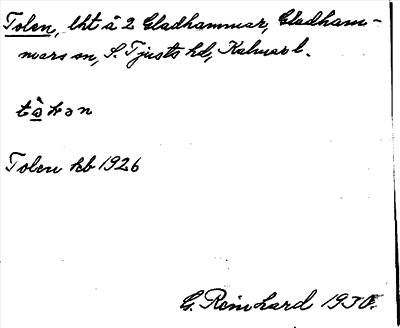 Tolen, lht å 2 Gladhammar, Gladham-
mars sn, S. Tjusts hd, Kalmar l.
Tolen kb 1926
G. Reinhard 1930.